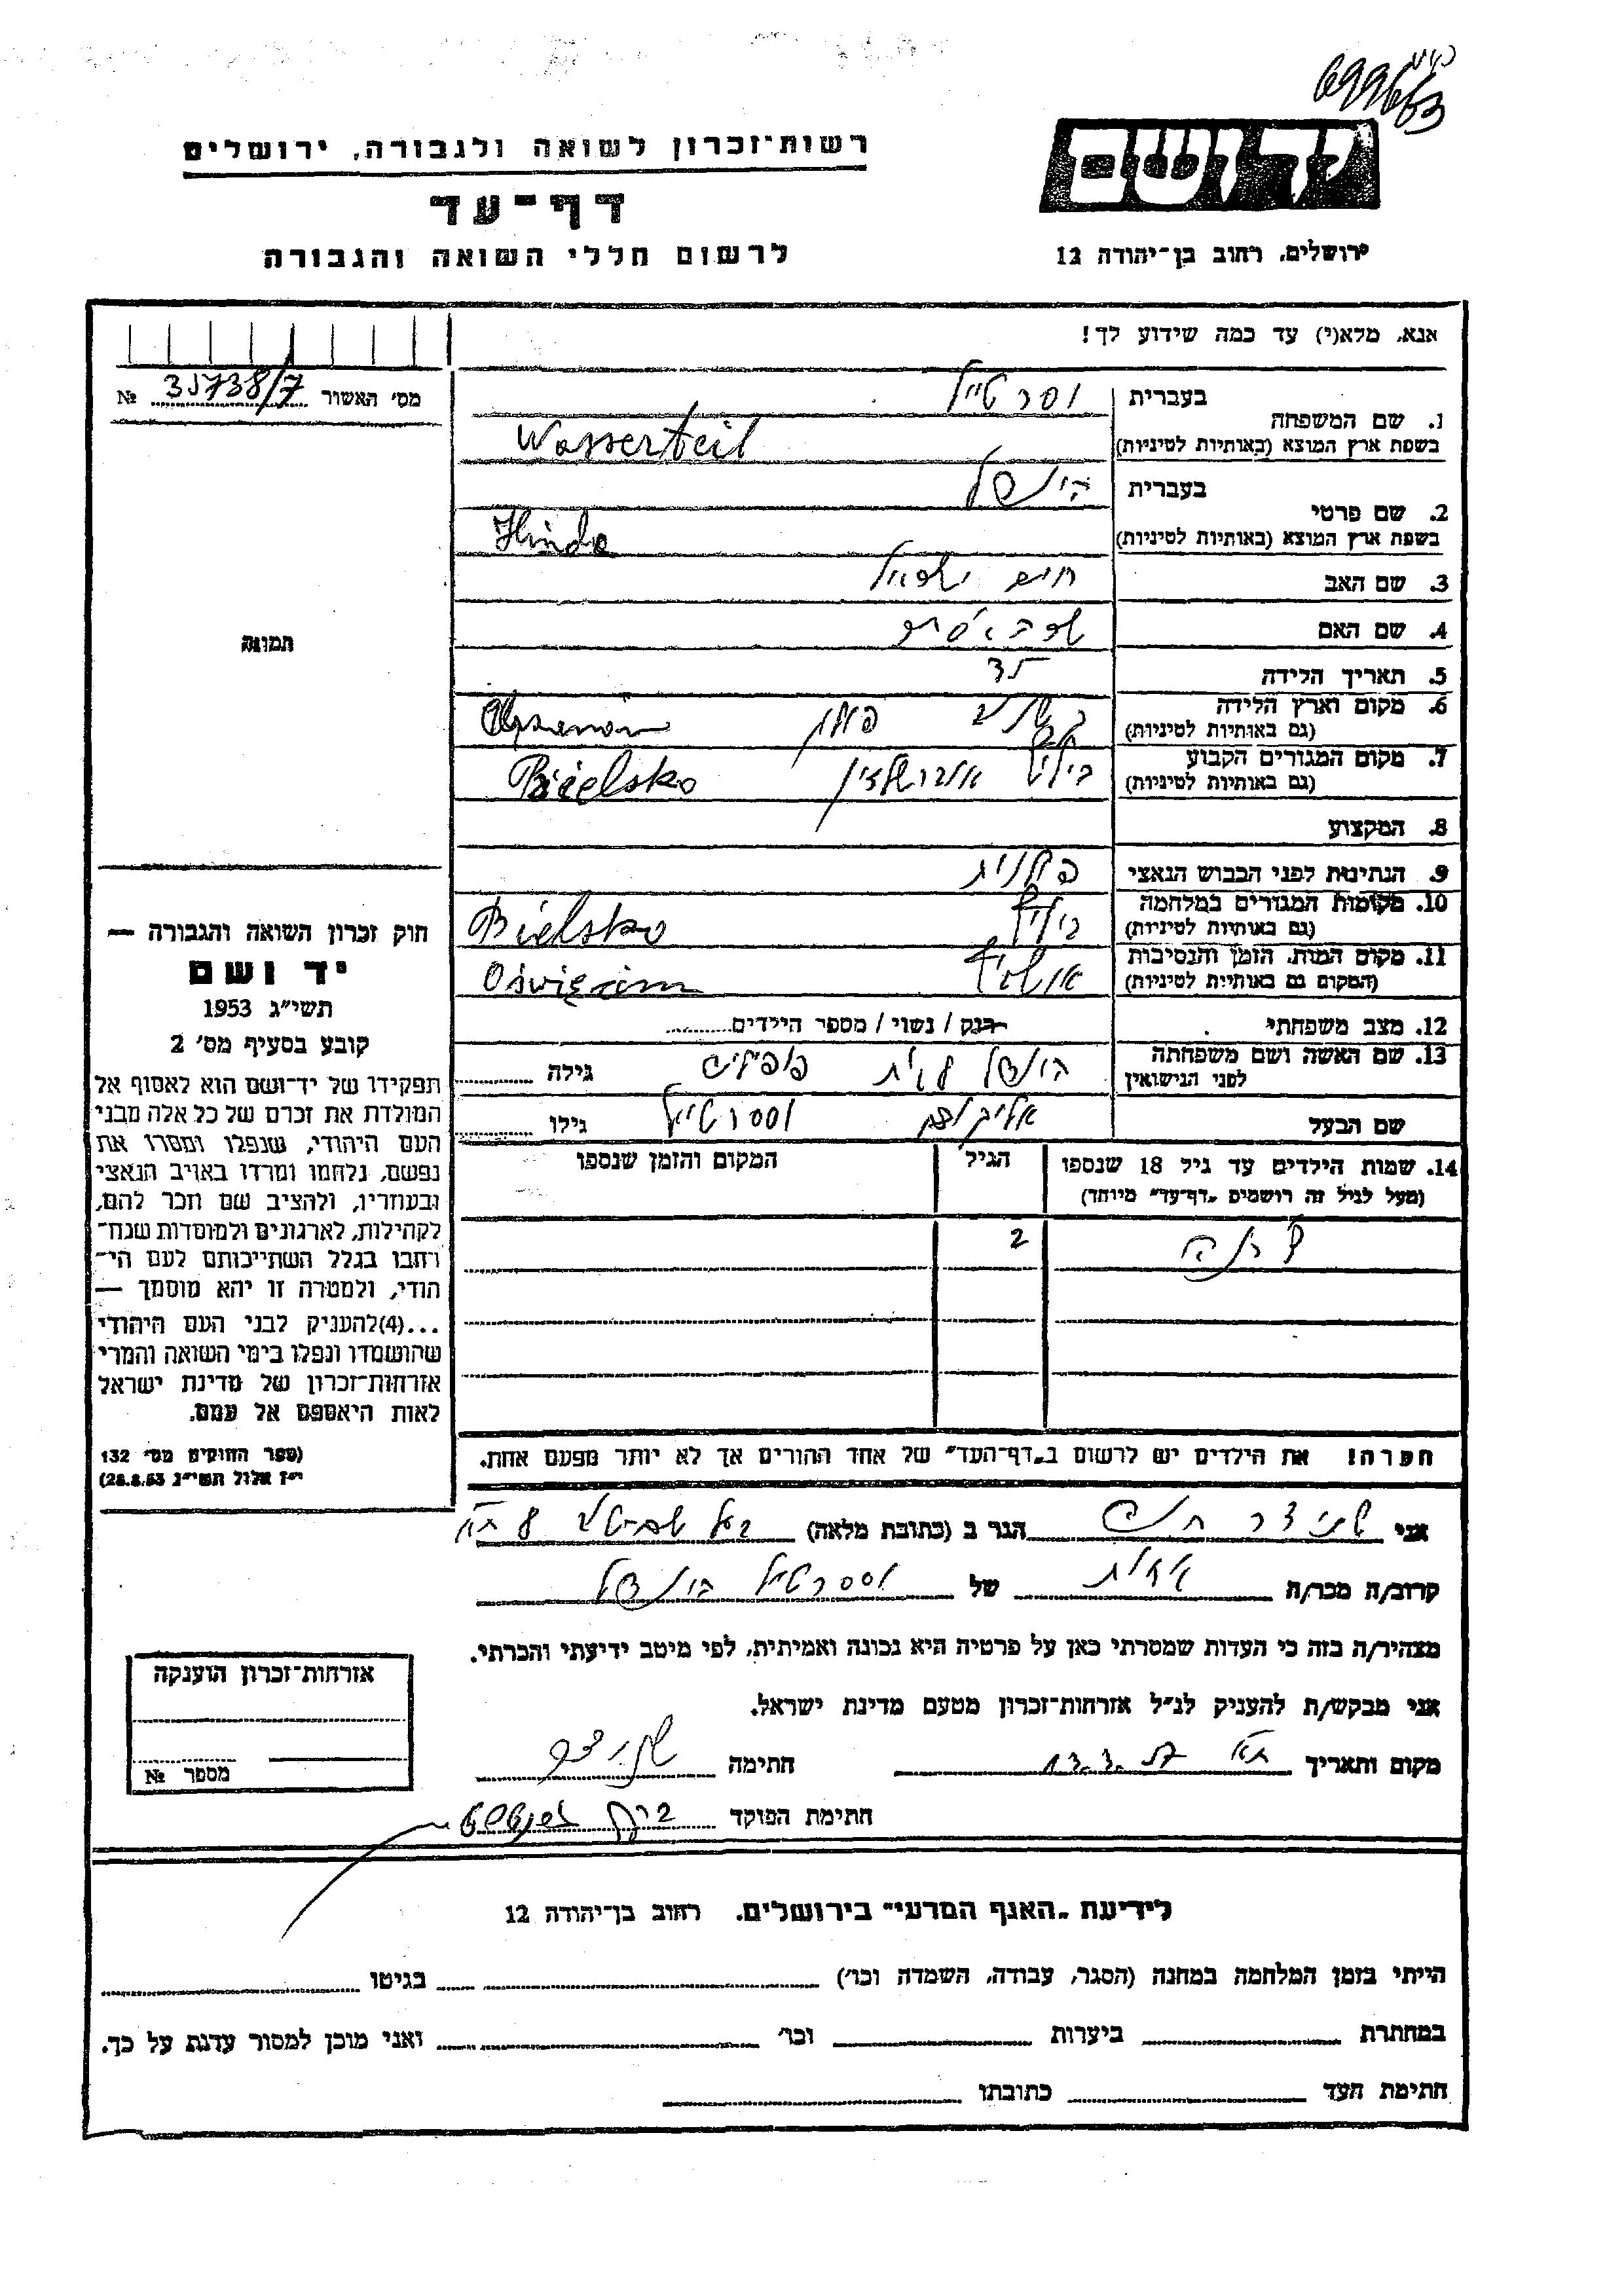 רשות־זכרון לשואה ולגבורה, ירושלים
דף־עד
לרשום חללי השואה והגבורה
יד ושם
ירושלים, רחוב בן־יהודה 12
אנא, מלא(י) עד כמה שידוע לך!
מס' האשור № 35738/7
בעברית וסרטייל
1. שם המשפחה
בשפת ארץ המוצא (באותיות לטיניות) Wasserteil
בעברית הינדל
2. שם פרטי
בשפת ארץ המוצא (באותיות לטיניות) Hinda
3. שם האב חיים ישראל
4. שם האם
5. תאריך הלידה
6. מקום וארץ הלידה פולין
(גם באותיות לטיניות)
7. מקום המגורים הקבוע ביליץ Bielsko
(גם באותיות לטיניות)
8. המקצוע
9. הנתינות לפני הכבוש הנאצי פולנית
10. מקומות המגורים במלחמה ביליץ Bielsko
(גם באותיות לטיניות)
11. מקום המות, הזמן והנסיבות אושויץ Oświęcim
(המקום גם באותיות לטיניות)
12. מצב משפחתי רווק / נשוי / מספר הילדים
13. שם האשה ושם משפחתה הינדל לבית גילה
לפני הנישואין
שם הבעל וסרטייל גילו
14. שמות הילדים עד גיל 18 שנספו הגיל המקום והזמן שנספו
(מעל לגיל זה רושמים „דף־עד" מיוחד)
2
הערה! את הילדים יש לרשום ב„דף־העד" של אחד ההורים אך לא יותר מפעם אחת.
תמונה
חוק זכרון השואה והגבורה —
יד ושם
תשי"ג 1953
קובע בסעיף מס' 2
תפקידו של יד־ושם הוא לאסוף אל
המולדת את זכרם של כל אלה מבני
העם היהודי, שנפלו ומסרו את
נפשם, נלחמו ומרדו באויב הנאצי
ובעוזריו, ולהציב שם וזכר להם,
לקהילות, לארגונים ולמוסדות שנח־
רחבו בגלל השתייכותם לעם הי־
הודי, ולמטרה זו יהא מוסמך —
...(4)להעניק לבני העם היהודי
שהושמדו ונפלו בימי השואה והמרי
אזרחות־זכרון של מדינת ישראל
לאות היאספם אל עמם.
(ספר החוקים מס' 132
י"ז אלול תשי"ג 28.8.53)
אני שניידר הגר ב (כתובת מלאה)
קרוב/ה מכר/ה אחות של וסרטייל הינדל
מצהיר/ה בזה כי העדות שמסרתי כאן על פרטיה היא נכונה ואמיתית, לפי מיטב ידיעתי והכרתי.
אני מבקש/ת להעניק לנ"ל אזרחות־זכרון מטעם מדינת ישראל.
מקום ותאריך חתימה שניידר
חתימת הפוקד
אזרחות־זכרון הוענקה
מספר №
לידיעת „האגף המדעי" בירושלים, רחוב בן־יהודה 12
הייתי בזמן המלחמה במחנה (הסגר, עבודה, השמדה וכו') בגיטו
במחתרת ביערות וכו' ואני מוכן למסור עדות על כך.
חתימת העד כתובתו